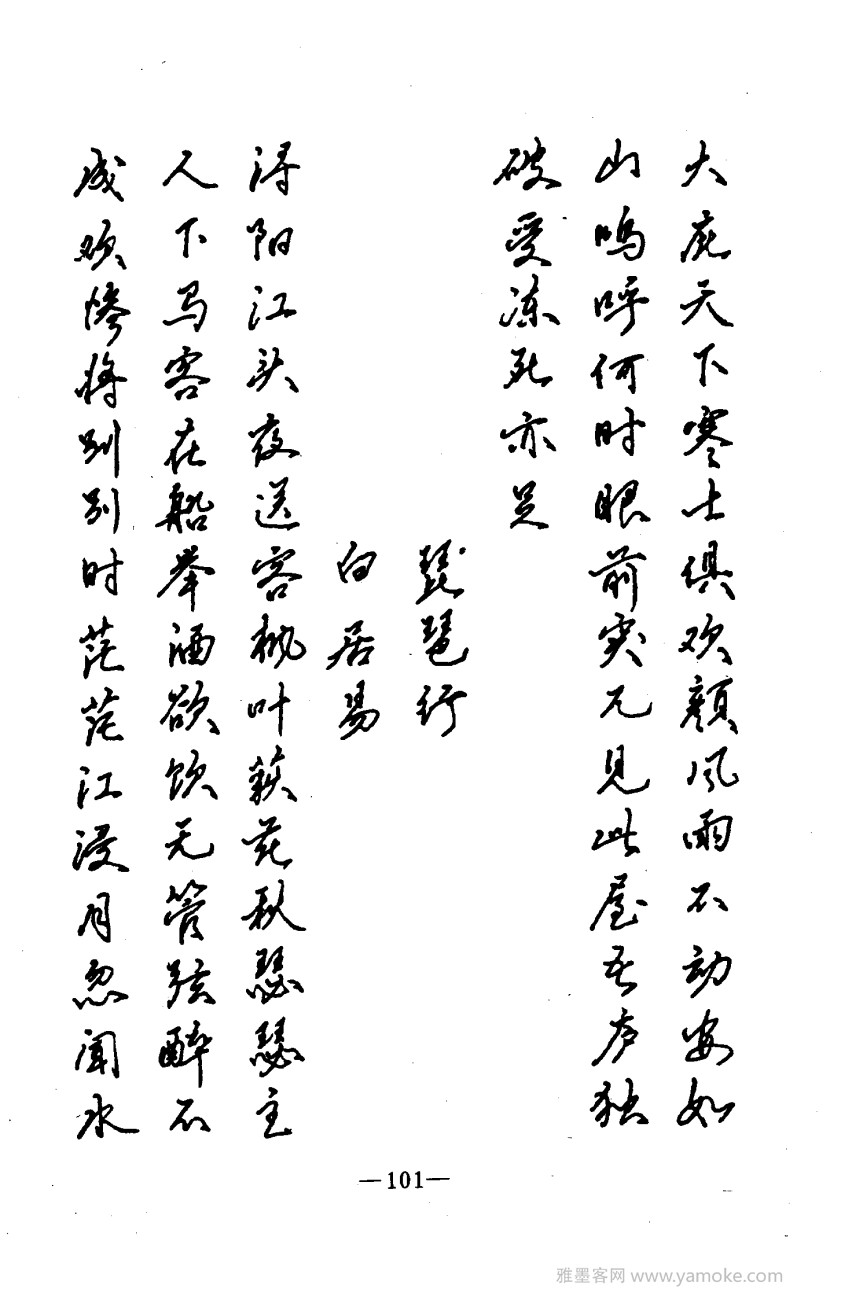 大庇天下寒士俱欢颜风雨不动安如
山呜呼何时眼前突兀见此屋吾庐独
破受冻死亦足
琵琶行
白居易
浔阳江头夜送客枫叶荻花秋瑟瑟主
人下马客在船举酒欲饮无管弦醉不
成欢惨将别别时茫茫江浸月忽闻水
—101—
雅墨客网 www.yamoke.com